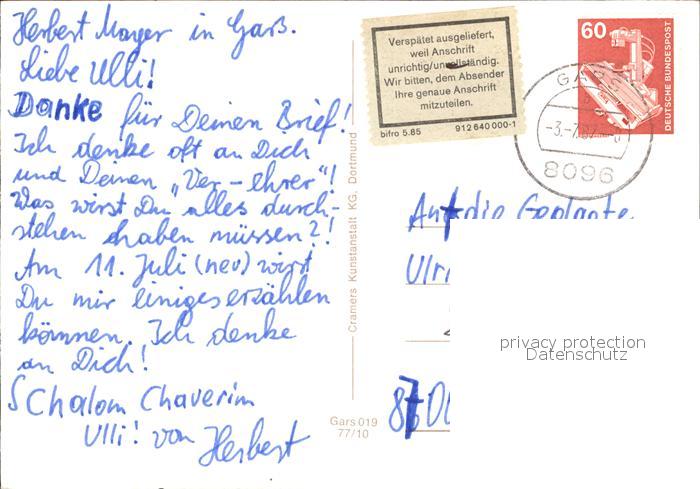 Herbert Mayer in Gars.
Liebe Ulli!
Danke für Deinen Brief!
Ich denke oft an Dich
und Deinen „Ver-ehrer"!
Was wirst Du alles durch-
stehen haben müssen?!
Am 11. Juli (neu) wirst
Du mir einiges erzählen
können. Ich denke
an Dich!
Schalom Chaverim
Ulli! von Herbert
Verspätet ausgeliefert,
weil Anschrift
unrichtig/unvollständig.
Wir bitten, dem Absender
Ihre genaue Anschrift
mitzuteilen.
bifro 5.85 912 640 000-1
60
DEUTSCHE BUNDESPOST
GARS
8096
Cramers Kunstanstalt KG. Dortmund
Gars 019
77/10
An die Geplante
Ulri
privacy protection
Datenschutz